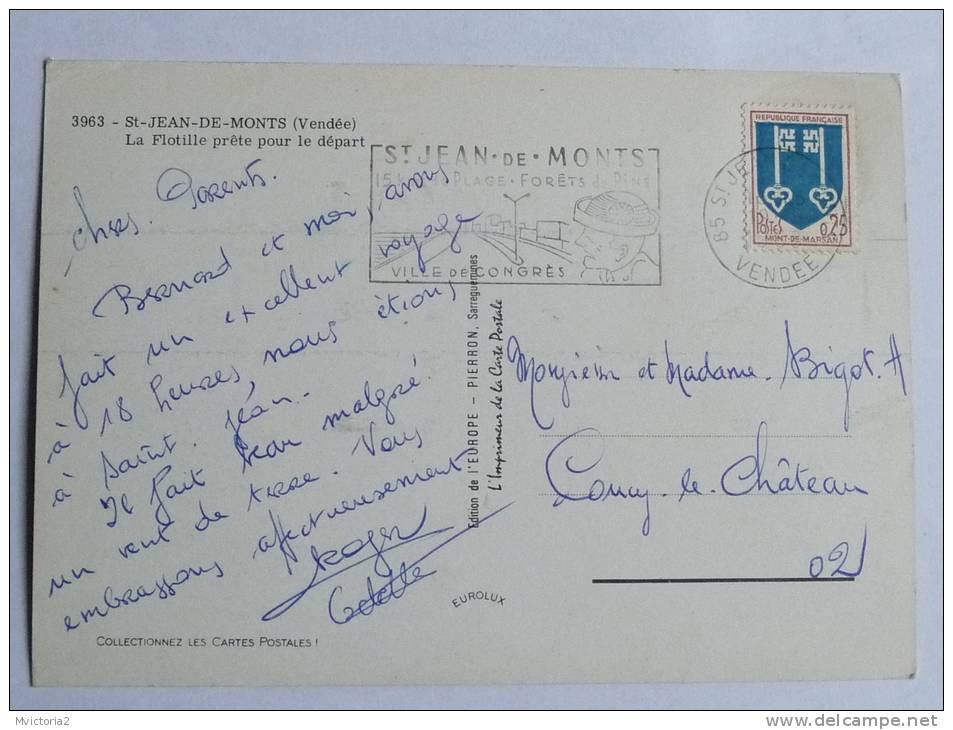 3963 - St-JEAN-DE-MONTS (Vendée)
La Flotille prête pour le départ
ST JEAN·DE·MONTS
PLAGE·FORÊTS de PINS
VILLE DE CONGRÈS
85 ST JE
VENDEE
REPUBLIQUE FRANÇAISE
POSTES 0,25
MONT-DE-MARSAN
Chers Parents.
Bernard et moi, avons
fait un excellent voyage
à 18 heures nous étions
à Saint. Jean.
Il fait beau malgré
un vent de terre. Vous
embrassons affectueusement
Roger
Odette
Edition de l'EUROPE - PIERRON, Sarreguemines
L'Imprimeur de la Carte Postale
Monsieur et Madame. Bigot. A
Coucy-le-Château
02
EUROLUX
COLLECTIONNEZ LES CARTES POSTALES !
Mvictoria2
www.delcampe.net